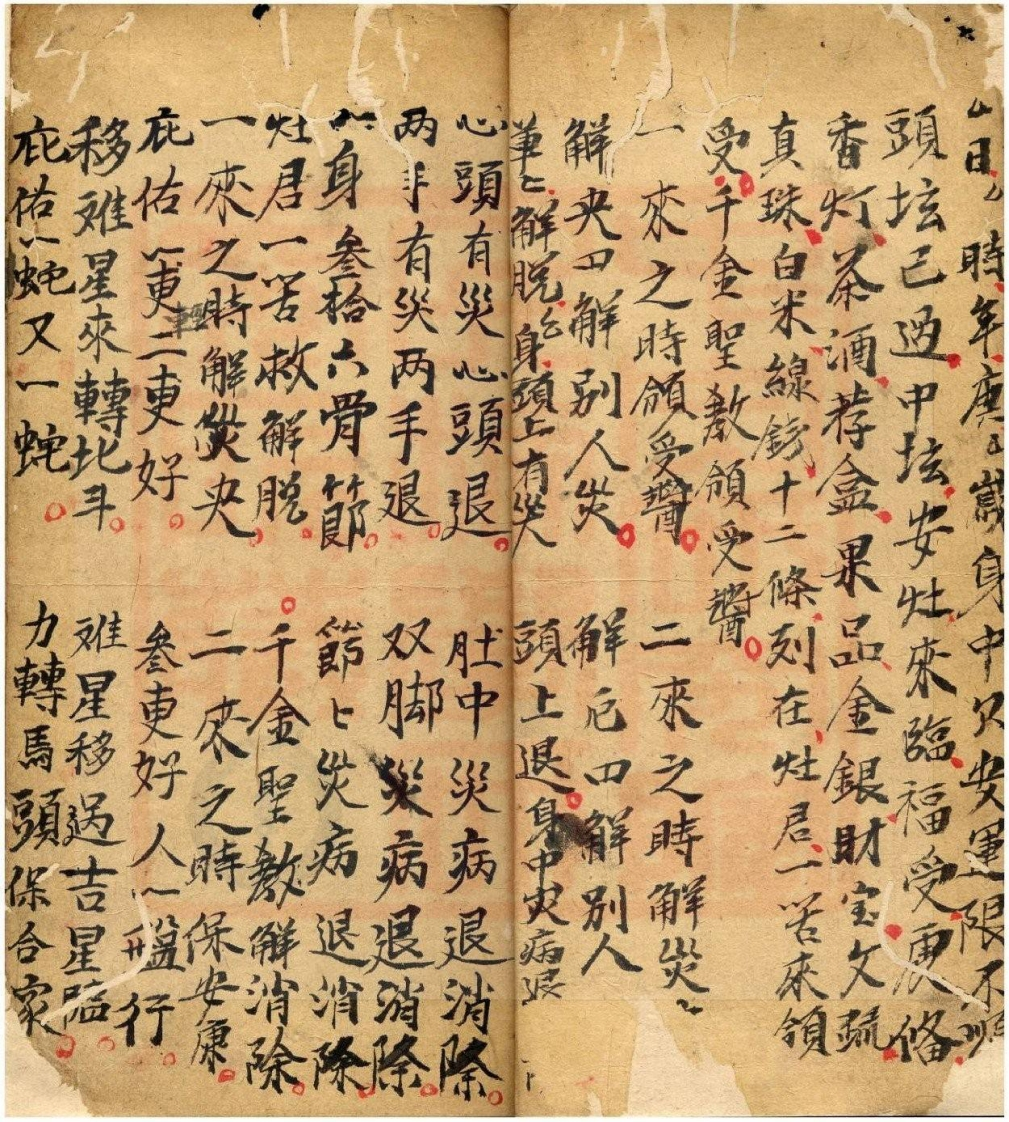 日時年庚歲身中欠安運限不順
頭坛已过中坛安灶來臨福受𢋨俻
香灯茶酒荐盒果品金銀財宝文疏
真珠白米線錢十二條列在灶君一筶來領
受千金聖教領受醬
一來之時領受醬 二來之時解災〻
解央田解別人災 解厄田解別人
解脫身頭上有災 頭上退身中灾病退
心頭有災心頭退 肚中災病退消除
两手有災两手退 双脚災病退消除
身叄拾六骨節 節〻災病退消除
灶君一筶救解脫 千金聖教解消除
一來之時解災央 二來之時保安康
庇佑一更二更好 叄更好人一盤行
移难星來轉北斗 难星移过吉星臨
庇佑一蛇又一蛇 力轉馬頭保合家